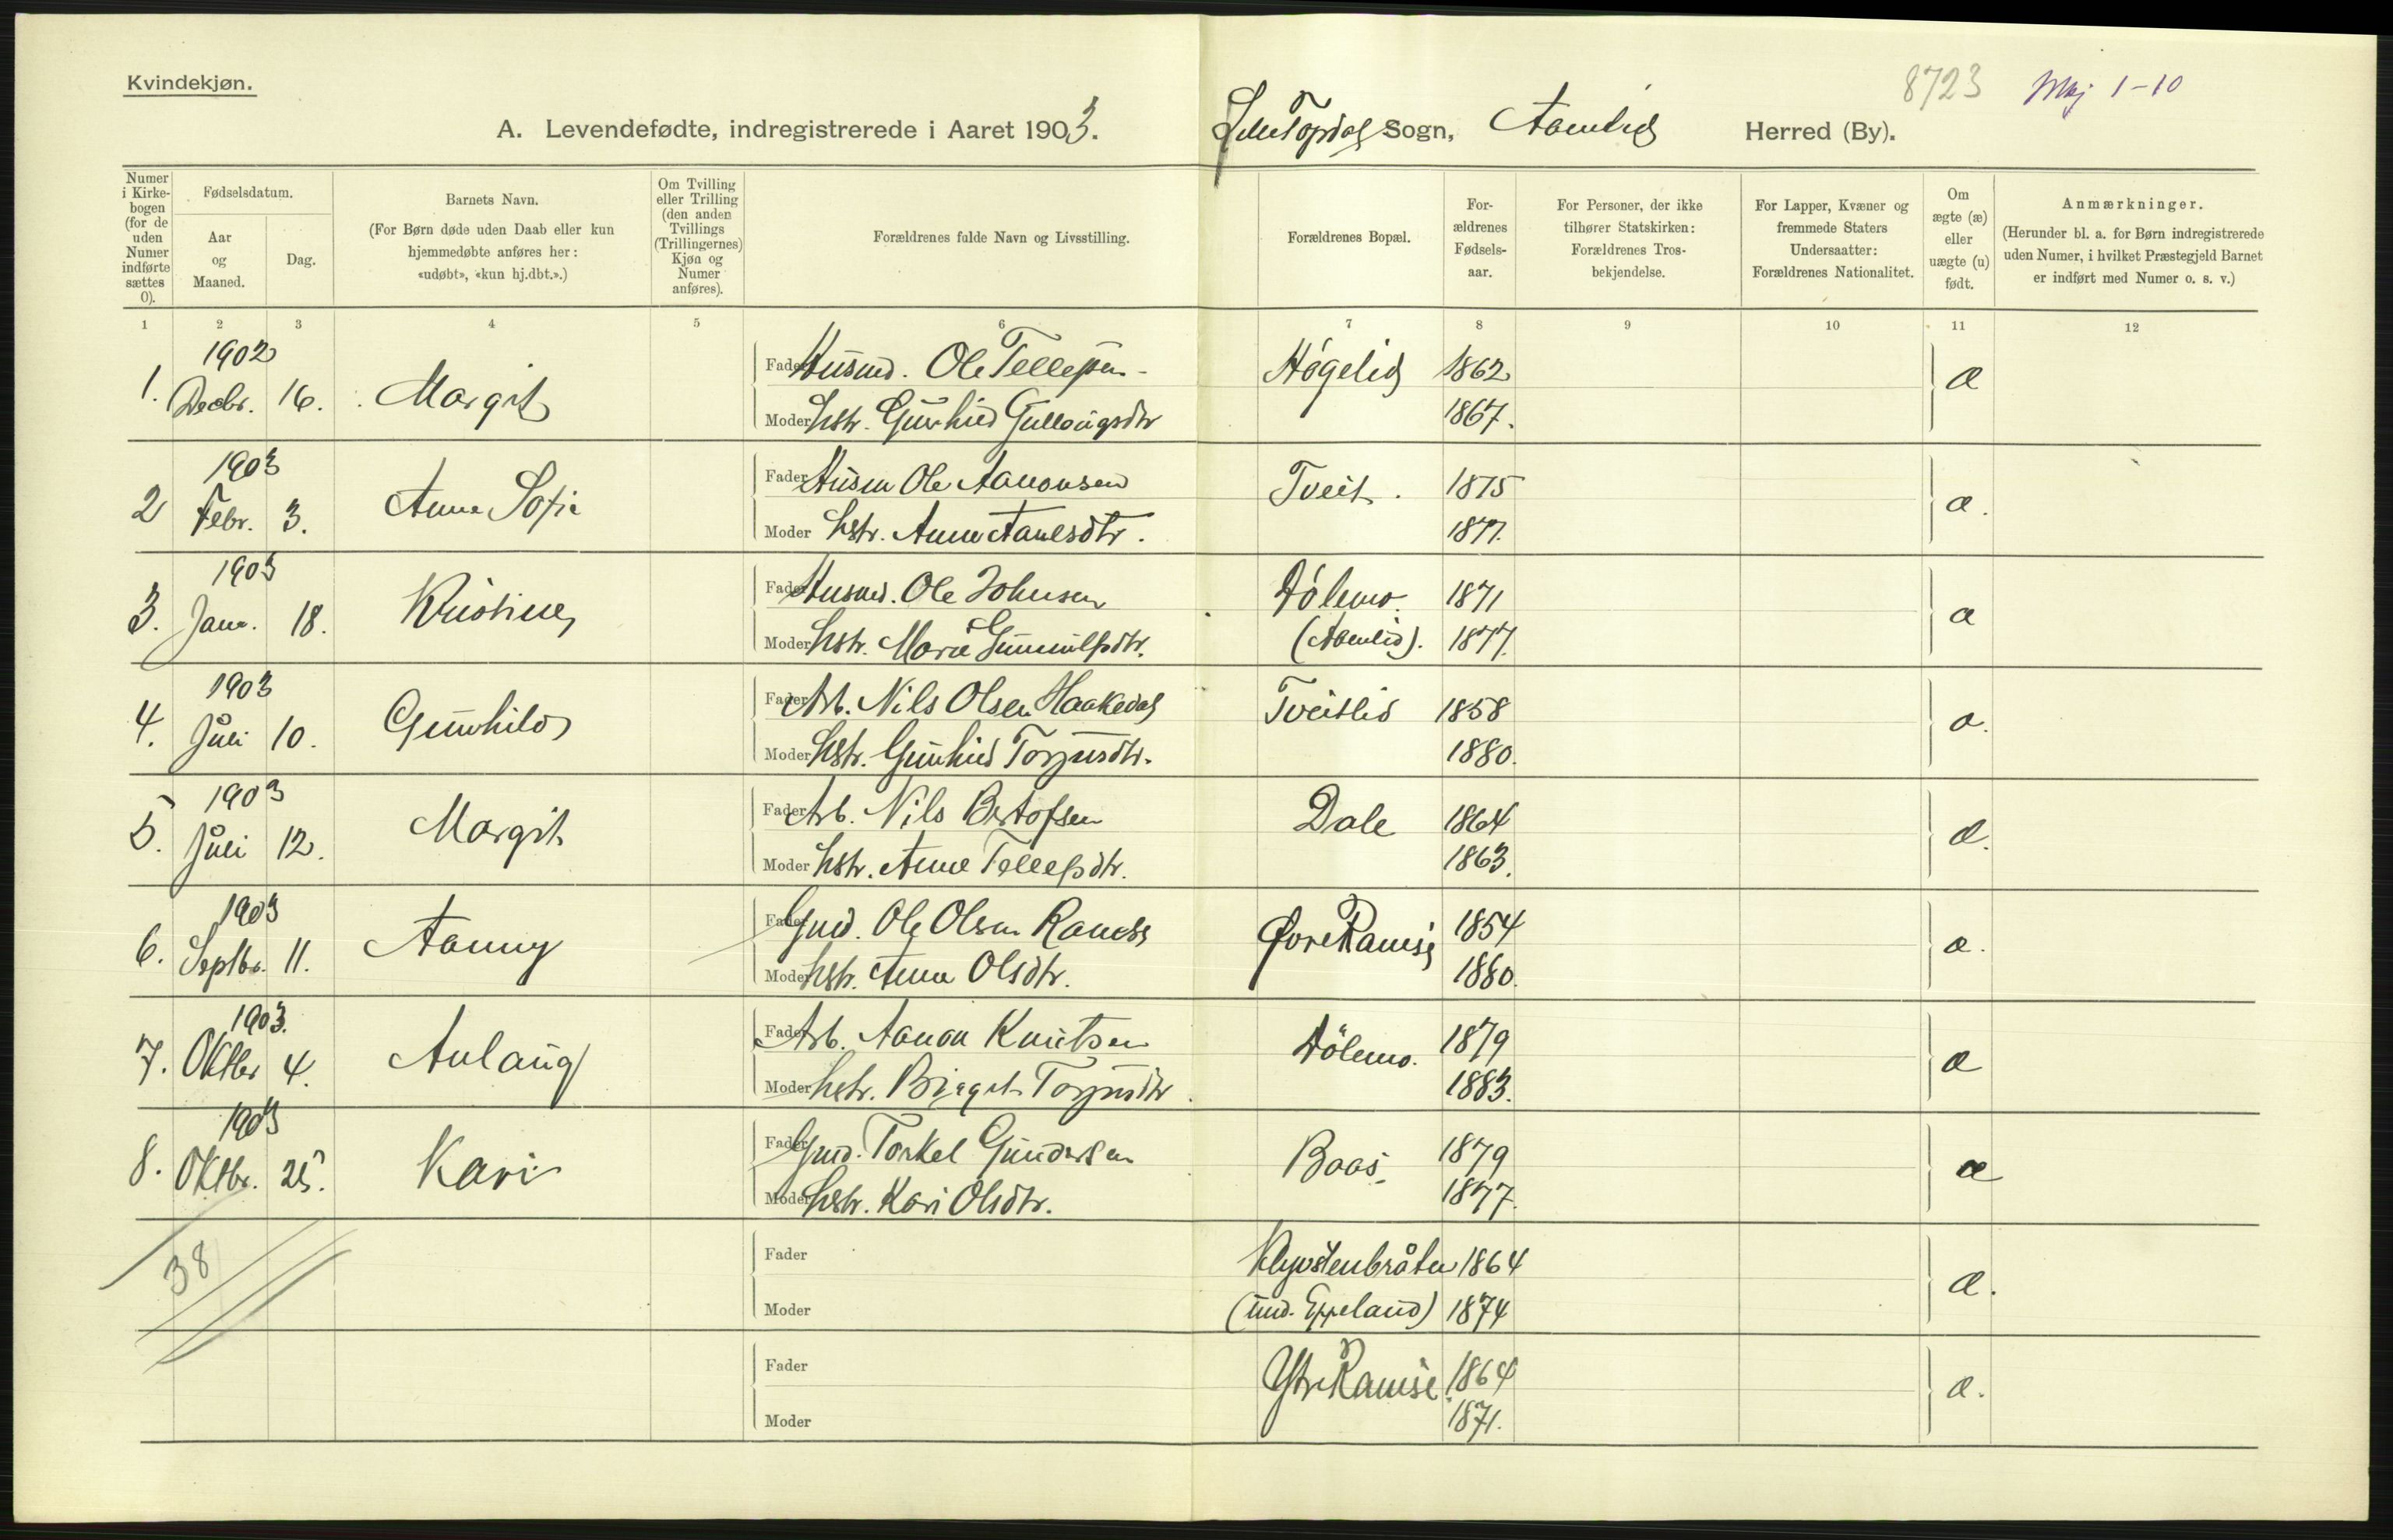 Kvindekjøn.
8723 Maj 1-10
A. Levendefødte, indregistrerede i Aaret 1903. Sogn, Aamlid Herred (By).
Numer i Kirkebogen (for de uden Numer indførte sættes 0).
Fødselsdatum.
Aar og Maaned.
Dag.
Barnets Navn.
(For Børn døde uden Daab eller kun hjemmedøbte anføres her: «udøbt», «kun hj.dbt.».)
Om Tvilling eller Trilling (den anden Tvillings (Trillingernes) Kjøn og Numer anføres).
Forældrenes fulde Navn og Livsstilling.
Forældrenes Bopæl.
For-ældrenes Fødsels-aar.
For Personer, der ikke tilhører Statskirken: Forældrenes Tros-bekjendelse.
For Lapper, Kvæner og fremmede Staters Undersaatter: Forældrenes Nationalitet.
Om ægte (æ) eller uægte (u) født.
Anmærkninger.
(Herunder bl. a. for Børn indregistrerede uden Numer, i hvilket Præstegjeld Barnet er indført med Numer o. s. v.)
1 2 3 4 5 6 7 8 9 10 11 12
1902
1. Decbr. 16. Margit Fader Husmd. Ole Tellefsen Høgelid 1862 æ
Moder hstr. Gunhild 1867.
1903
2 Febr. 3. Anne Sofie Fader Husm Ole Aanonsen Tveit. 1875 æ.
Moder hstr. Anne 1877.
1903
3. Janr. 18. Kristine Fader Husmd. Ole Johnsen Dölemo. 1871 æ
Moder hstr. Marie Gunnulfsdtr. (Aamlid). 1877.
1903
4. Juli 10. Gunhild Fader Arb. Nils Olsen Haakedal Tveitlid 1858 æ.
Moder hstr. Gunhild Torjusdtr. 1880.
1903
5. Juli 12. Margit Fader Arb. Nils Dale 1864 æ.
Moder hstr. Anne Tellefsdtr. 1863.
1903
6. Septbr. 11. Aanny Fader Gmd. Ole Olsen Øvre Ramse 1854 æ.
Moder hstr. Anne Olsdtr. 1880.
1903.
7. Oktbr 4. Aulaug Fader Arb. Aanon Knutsen Dölemo. 1879 æ
Moder hstr. Birgit Torjusdtr 1883.
1903
8. Oktbr. 25. Kari Fader Gmd. Torkel Gundersen Baas 1879 æ
Moder hstr. Kari Olsdtr. 1877.
38
Fader 1864 æ.
Moder (und. Eppeland) 1874
Fader Ytre Ramse 1864 æ.
Moder 1871.